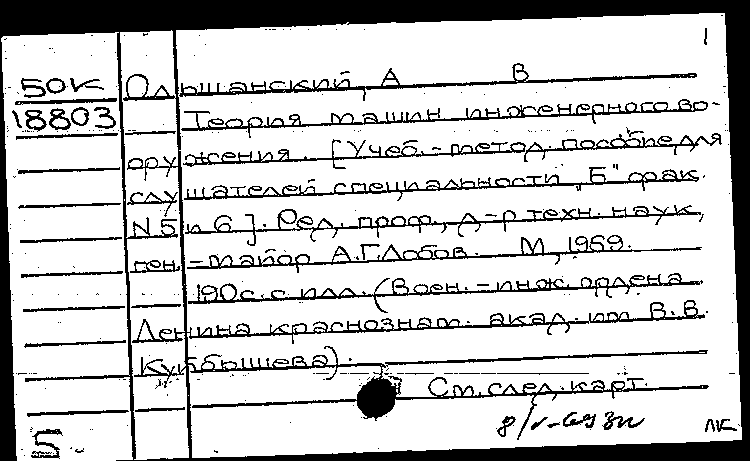 1
50К Ольшанский, А В
18803 Теория машин инженерного во-
оружения. [Учеб.-метод. пособие для
слушателей специальности „Б" фак.
N.5 и 6]. Ред. проф., д-р техн. наук,
ген.-майор А.Г.Лобов. М, 1969.
190с. с илл. (Воен.-инж. ордена
Ленина краснознам. акад. им В.В.
Куйбышева).
См. след. карт.
5
ЛК